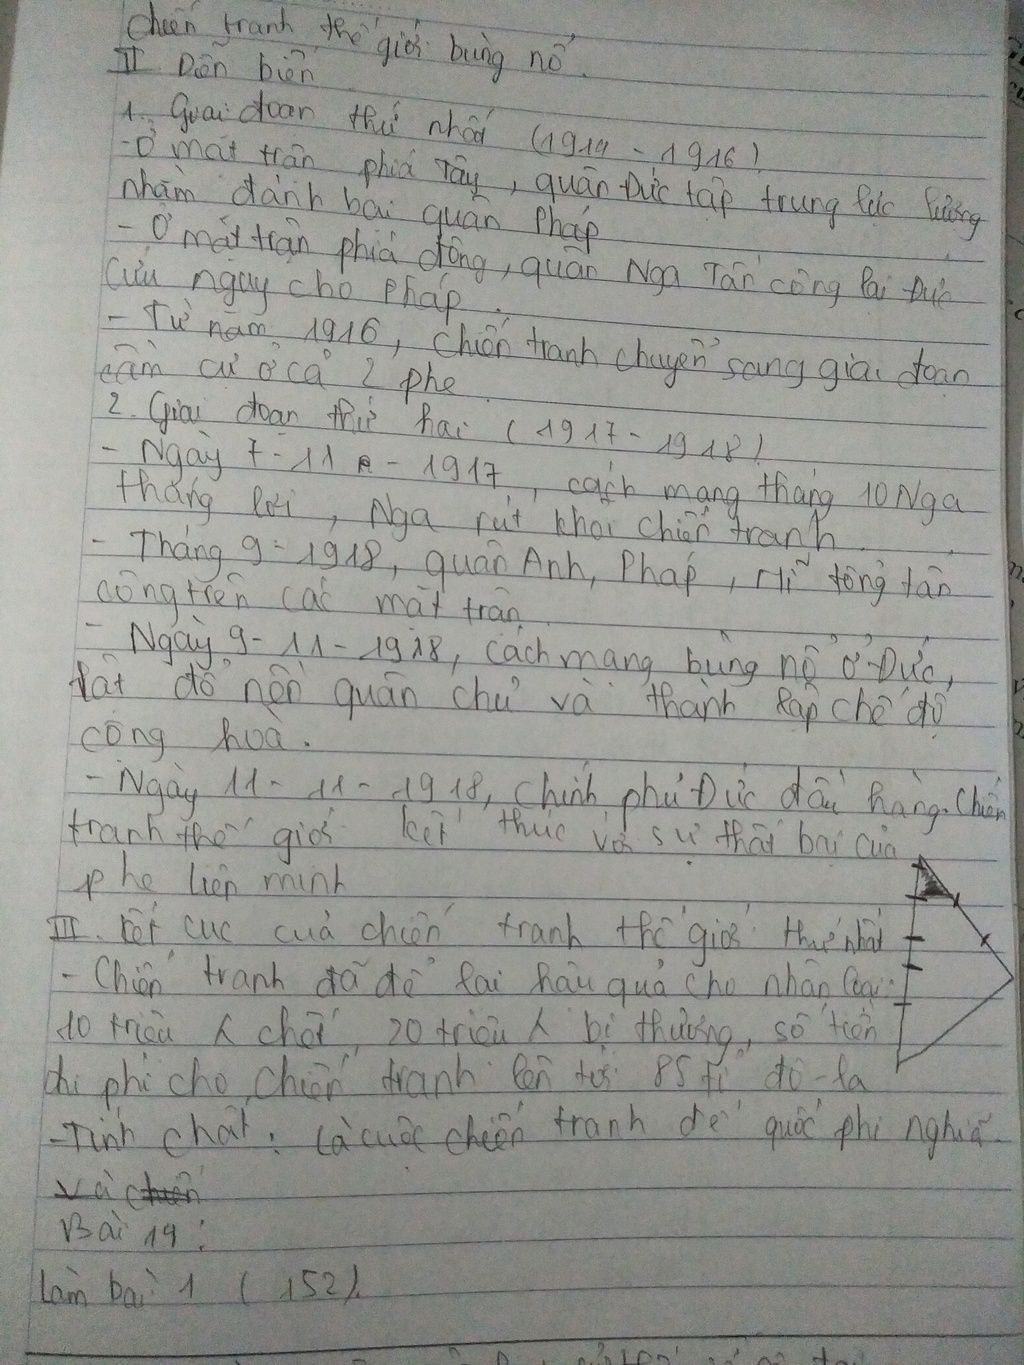 Chiến tranh thế giới bùng nổ.
II Diễn biến
1. Giai đoạn thứ nhất (1914 - 1916)
- Ở mặt trận phía Tây, quân Đức tập trung lực lượng
nhằm đánh bại quân Pháp
- Ở mặt trận phía đông, quân Nga Tấn công lại Đức
cứu nguy cho Pháp.
- Từ năm 1916, chiến tranh chuyển sang giai đoạn
cầm cự ở cả 2 phe
2. Giai đoạn thứ hai (1917 - 1918)
- Ngày 7 - 11 - 1917, cách mạng tháng 10 Nga
thắng lợi, Nga rút khỏi chiến tranh.
- Tháng 9 - 1918, quân Anh, Pháp, Mĩ tổng tấn
công trên các mặt trận.
- Ngày 9 - 11 - 1918, cách mạng bùng nổ ở Đức,
lật đổ nền quân chủ và thành lập chế độ
cộng hoà.
- Ngày 11 - 11 - 1918, chính phủ Đức đầu hàng. Chiến
tranh thế giới kết thúc với sự thất bại của
phe liên minh
III. Kết cục của chiến tranh thế giới thứ nhất
- Chiến tranh đã để lại hậu quả cho nhân loại:
10 triệu chết, 20 triệu bị thương, số tiền
chi phí cho chiến tranh lên tới 85 tỉ đô-la
- Tính chất: Là cuộc chiến tranh đế quốc phi nghĩa.
và chiến
Bài 19:
Làm bài 1 (152).